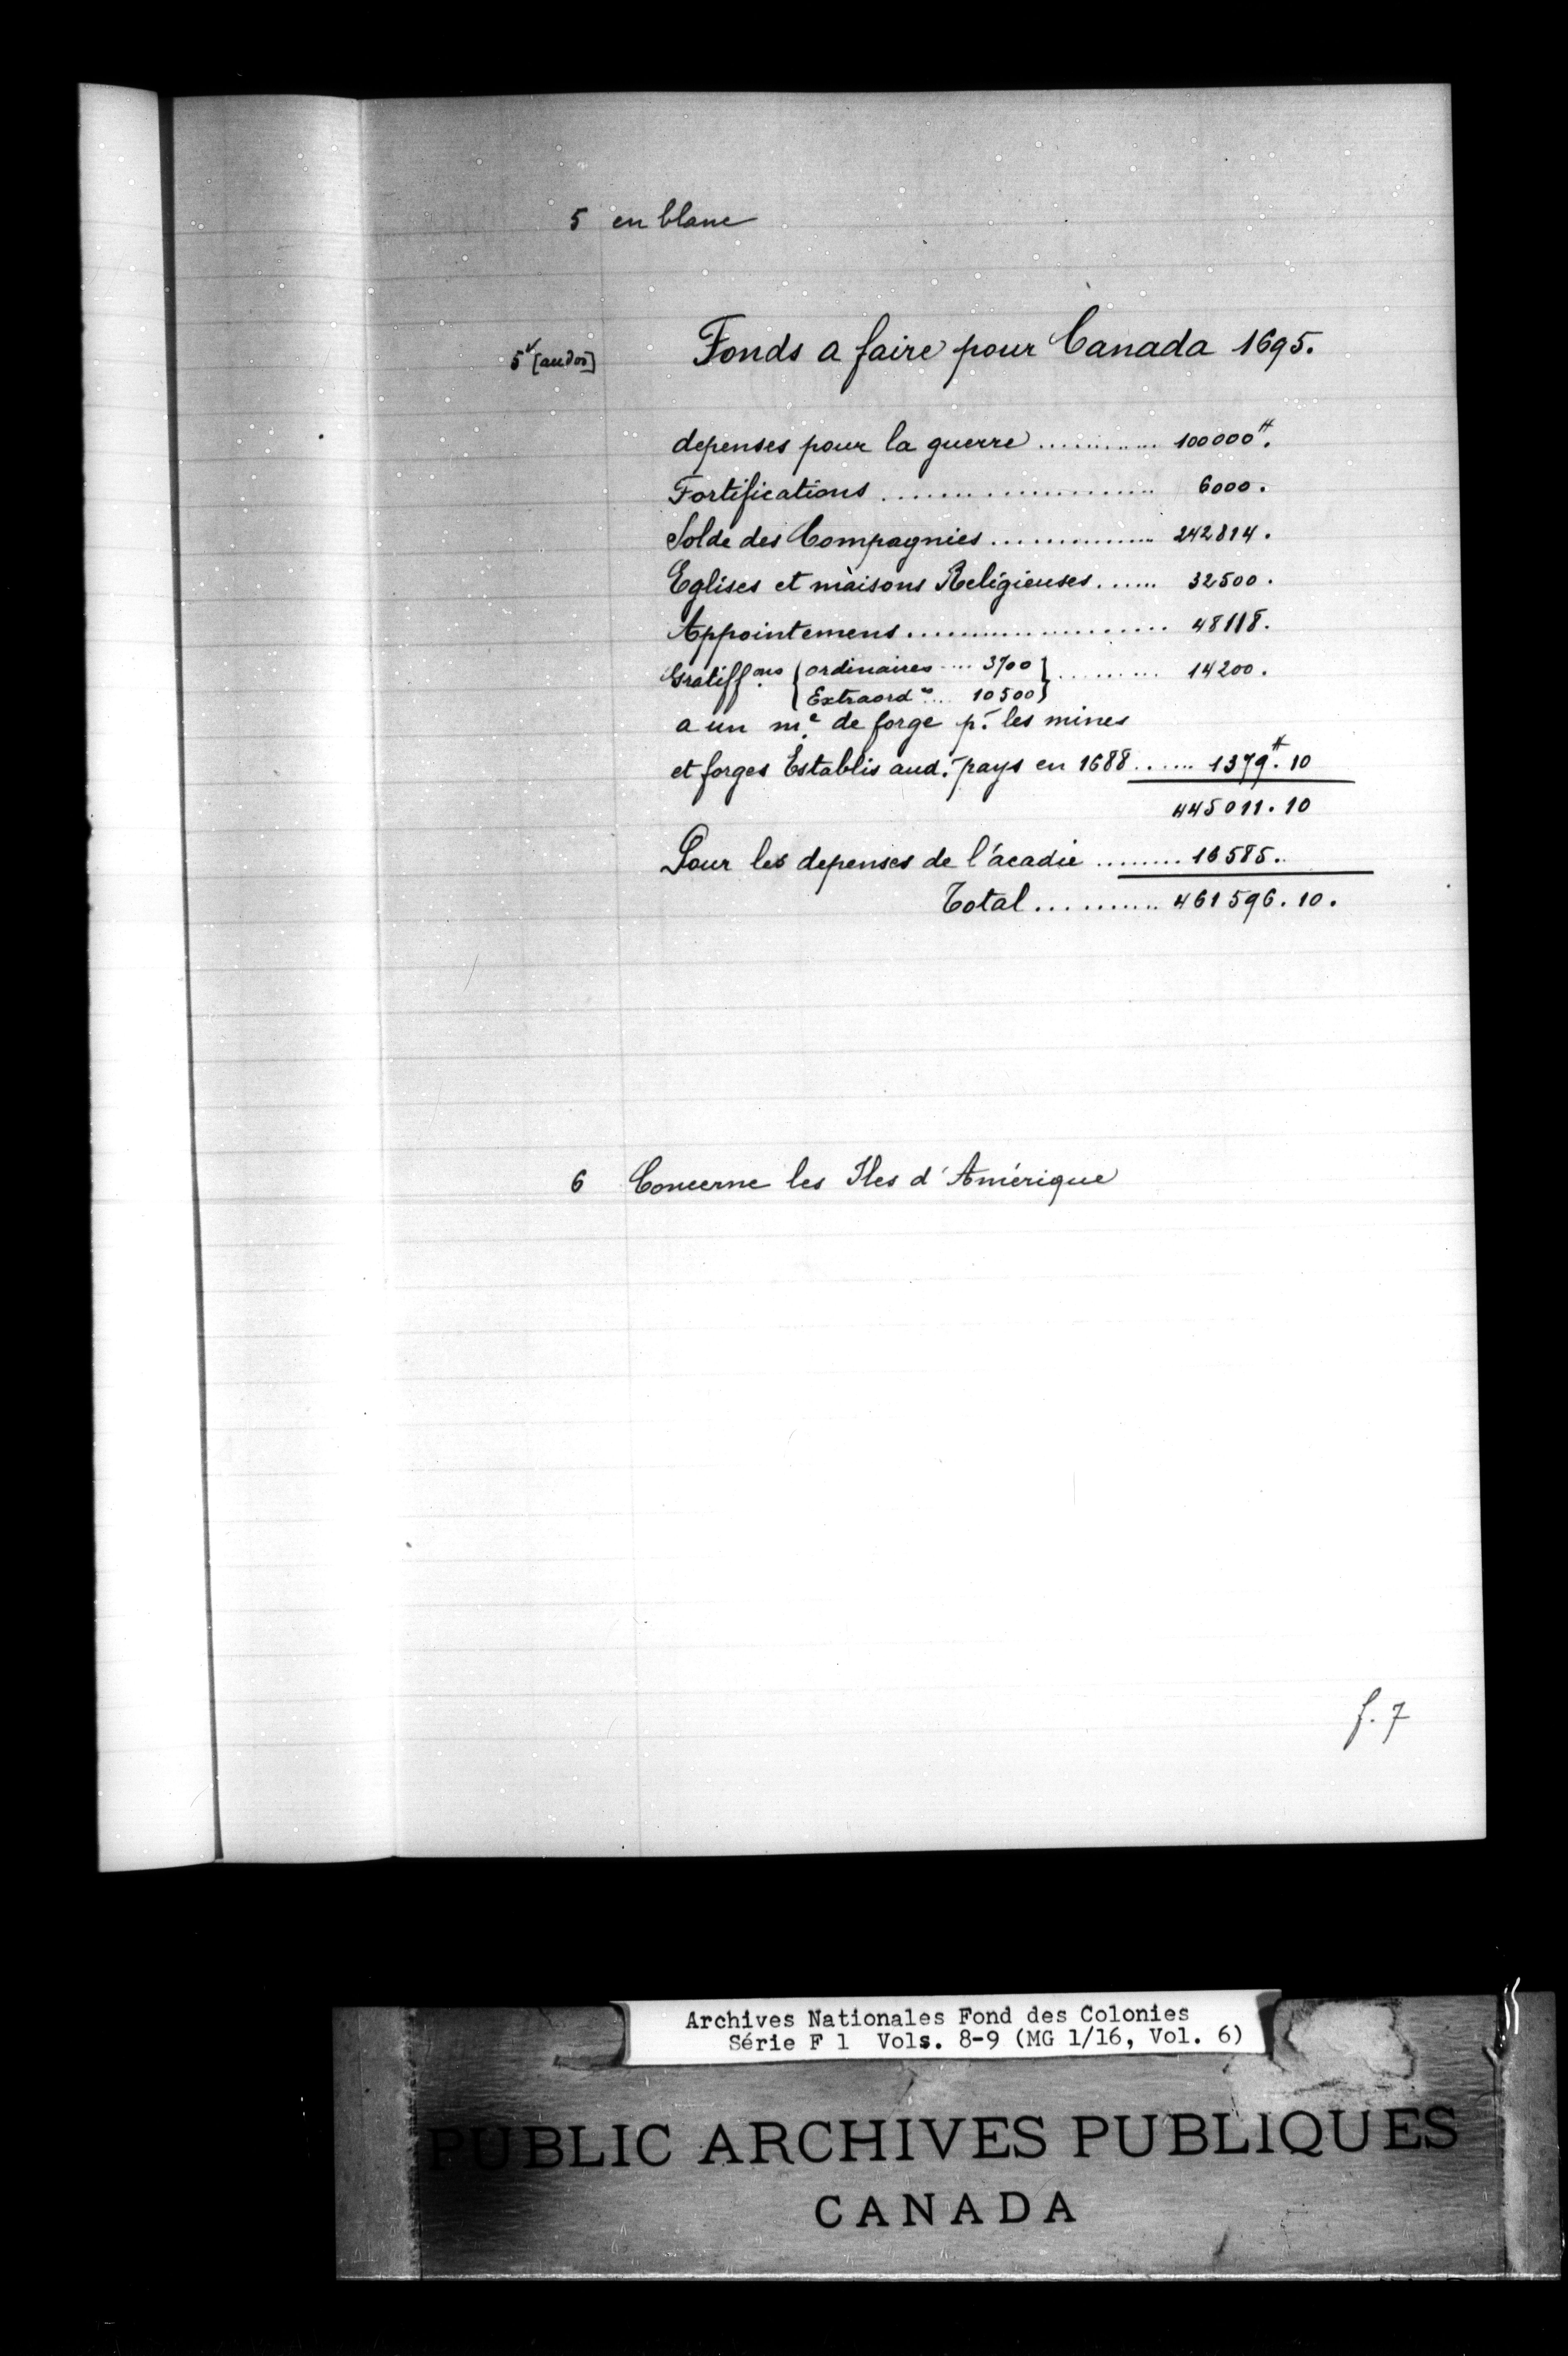 5 en blanc
5v [au dos] Fonds a faire pour Canada 1695.
depenses pour la guerre ............ 100000#.
Fortifications ..................... 6000.
Solde des Compagnies ............... 242814.
Eglises et maisons Religieuses ...... 32500.
Appointemens ..................... 48118.
Gratiffons. { ordinaires .... 3700 } ......... 14200.
Extraordres .... 10500 }
a un me. de forge pr. les mines
et forges Establis aud. pays en 1688 ...... 1379#. 10
445011. 10
Pour les depenses de l'acadie ........ 16585.
Total ........... 461596. 10.
6 Concerne les Iles d'Amérique
f. 7
Archives Nationales Fond des Colonies
Série F 1 Vols. 8-9 (MG 1/16, Vol. 6)
PUBLIC ARCHIVES PUBLIQUES
CANADA